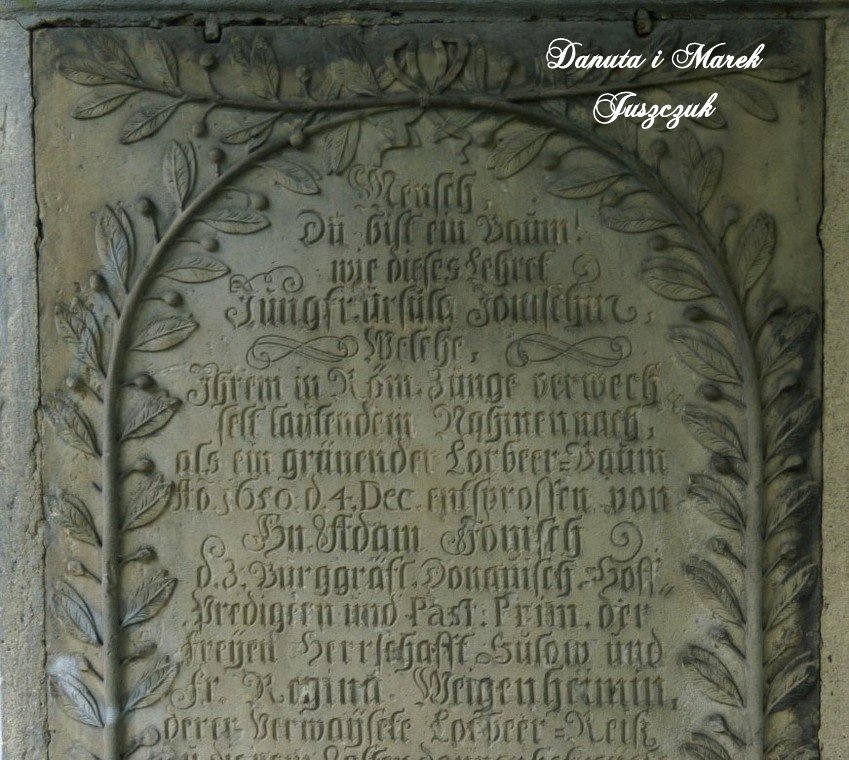 Danuta i Marek
Juszczuk
Mensch,
Du bist ein Baum!
wie dieses Lehret
Jungfr. Ursula
Welche,
Ihrem in Röm. Zunge verwech
selt lautendem Nahmen nach,
als ein grünender Lorbeer=Baum
Ao. 1650. d. 4. Dec. entsprossen von
Hn. Adam Jonisch
d. Z. Burggräfl. Donauisch. Hoff
Predigern und Past: Prim. der
Freÿen Herrschafft und
Fr. Regina Weigenheimin,
derer Verwaÿsete Lorbeer=Reiß